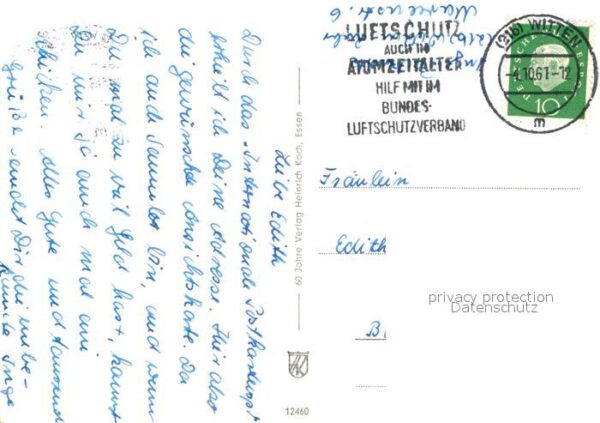 Liebe Edith
Durch das "Internationale Postkarten
erhielt ich Deine Adresse. Hier also
die gewünschte Ansichtskarte. Da
ich auch Sammler bin, und wenn
Du mal zu viel Geld hast, kannst
Du mir ja auch mal ein
schicken. Alles Gute und tausend
Grüße sendet Dir die unbe-
kannte Inge
60 Jahre Verlag Heinrich Koch, Essen
12460
LUFTSCHUTZ
AUCH IM
ATOMZEITALTER
HILF MIT IM
BUNDES-
LUFTSCHUTZVERBAND
(21b) WITTEN
-4.10.61-12
m
10
Fräulein
Edith
B
privacy protection
Datenschutz